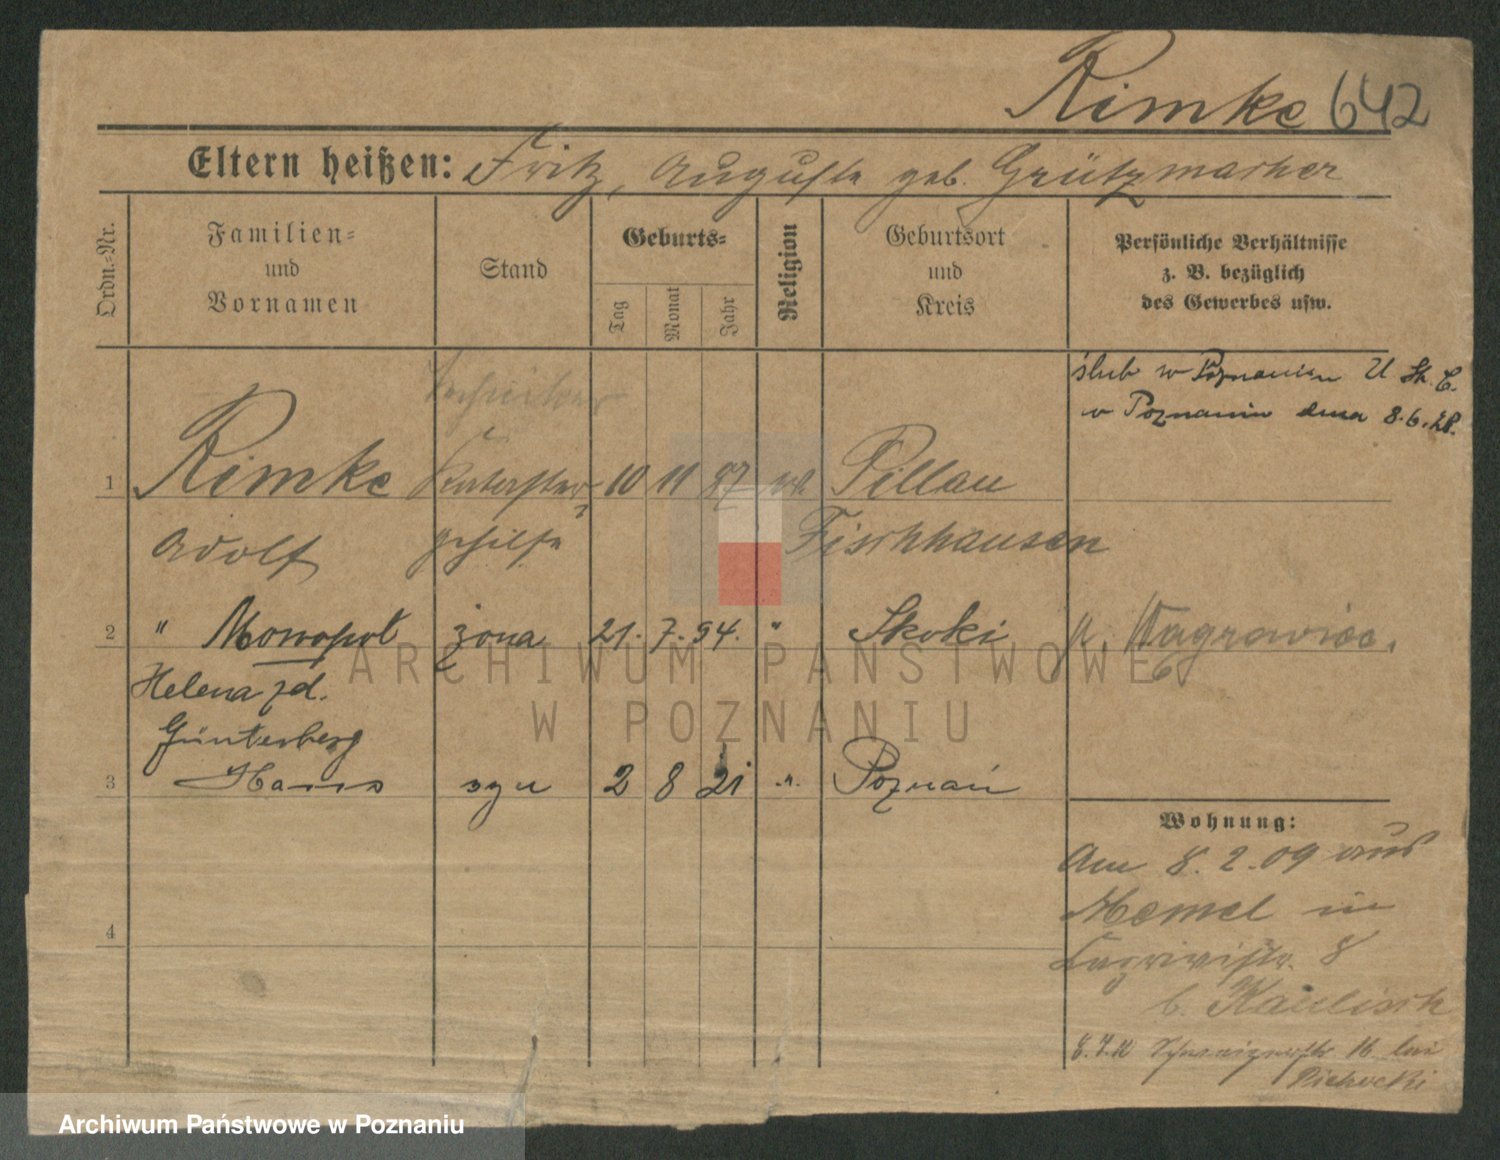 Rimke 642
Eltern heißen: Fritz, Auguste geb. Grützmacher
Ordn.=Nr.
Familien=
und
Vornamen
Stand
Geburts=
Tag
Monat
Jahr
Religion
Geburtsort
und
Kreis
Persönliche Verhältnisse
z. B. bezüglich
des Gewerbes usw.
ślub w Poznaniu U. St. C.
w Poznaniu dnia 8.6.28.
1 Rimke Kataster- 10 11 87 Pillau
Adolf gehilfe Fischhausen
2 " Monopol żona 21. 7. 94. " Skoki p. Wągrowiec.
Helena zd.
Günterberg
3 Hans syn 2 8 21 " Poznań
Wohnung:
Am 8. 2. 09 aus
Memel in
8
4
b. Kaulisch
8.7.11 16 bei
Piechocki
ARCHIWUM PAŃSTWOWE
W POZNANIU
Archiwum Państwowe w Poznaniu